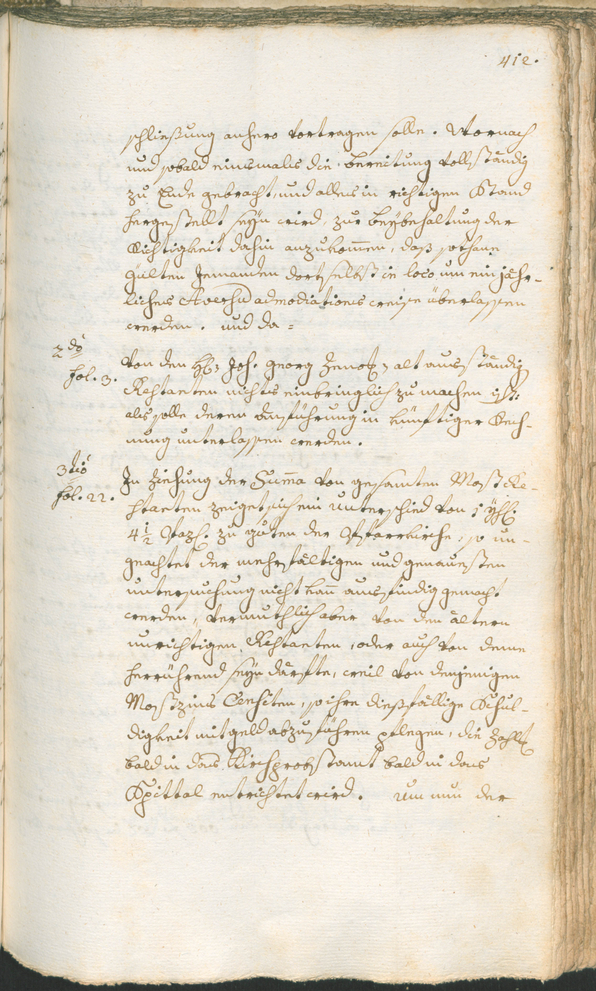 412.
schließung anhero vortragen solle. Wornach
und sobald einsmals die bereitung vollständig
zu Ende gebracht, und alles in richtigen Stand
hergestellt seyn wird, zur beybehaltung der
Richtigkeit dahin anzukommen, daß sothane
gülten Jemanden dortselbst in loco um ein jähr-
liches Aversu admodiationis weise überlassen
werden. und da=
2do
fol. 3.
Von den H: Joh. Georg alt ausständig
Restanten nichts einbringlich zu machen ist:
als solle deren Ausführung in künftiger Rech-
nung unterlassen werden.
3tio
fol. 22.
In Ziehung der Suma von gesamten Most Re-
stanten zeiget sich ein unterschied von 1 Yhrn
4 1/2 Pazd. zu guten der Pfarrkirche, so un-
geachtet der mehrfältigen und genauesten
untersuchung nicht kan ausfindig gemacht
werden, vermuthlich aber von den ältern
unrichtigen Restanten, oder auch von deme
herrührend seyn därfte, weil von denjenigen
Mostzins Censiten, so ihre dießfällige Schul-
digkeit mit geld abzuführen pflegen, die Zahlt
bald in das Kirchprobstamt bald in das
Spittal entrichtet wird. Um nun der